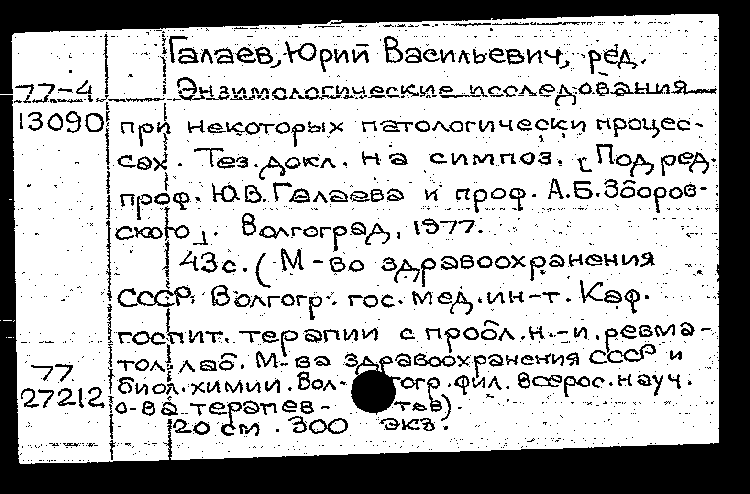 Галаев, Юрий Васильевич, ред.
77-4 Энзимологические исследования
13090 при некоторых патологически процес-
сах. Тез. докл. на симпоз. [Под ред.
проф. Ю.В. Галаева и проф. А.Б. Зборов-
ского]. Волгоград, 1977.
43с. (М-во здравоохранения
СССР. Волгогр. гос. мед. ин-т. Каф.
госпит. терапии с пробл. н.-и. ревма-
тол. лаб. М-ва здравоохранения СССР и
77 биол. химии. Вол- гогр. фил. всерос. науч.
27212 о-ва терапев- тов).
20 см. 300 экз.